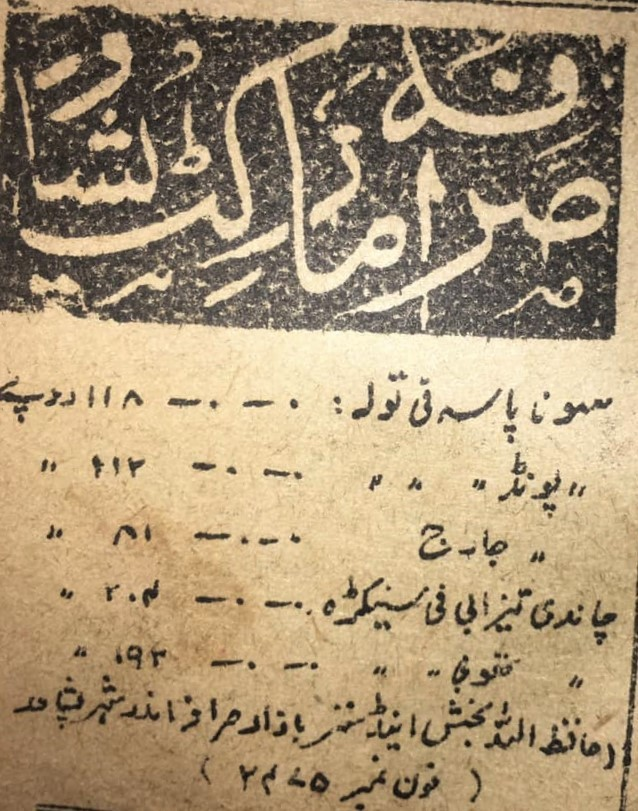 صرافہ مارکیٹ پشاور
سونا پاسہ فی تولہ : ۰ — ۰ — ۱۱۸ روپے
〃 پونڈ 〃 〃 〃 ۰ — ۰ — ۱۱۲ 〃
〃 جارج ۰ — ۰ — ۸۱ 〃
چاندی تیزابی فی سینکڑہ ۰ — ۰ — ۲۰۴ 〃
〃 〃 〃 ۰ — ۰ — 〃
(حافظ اللہ بخش اینڈ سنز بازار صرافز اندر شہر پشاور
(فون نمبر ۲۴۷۵)